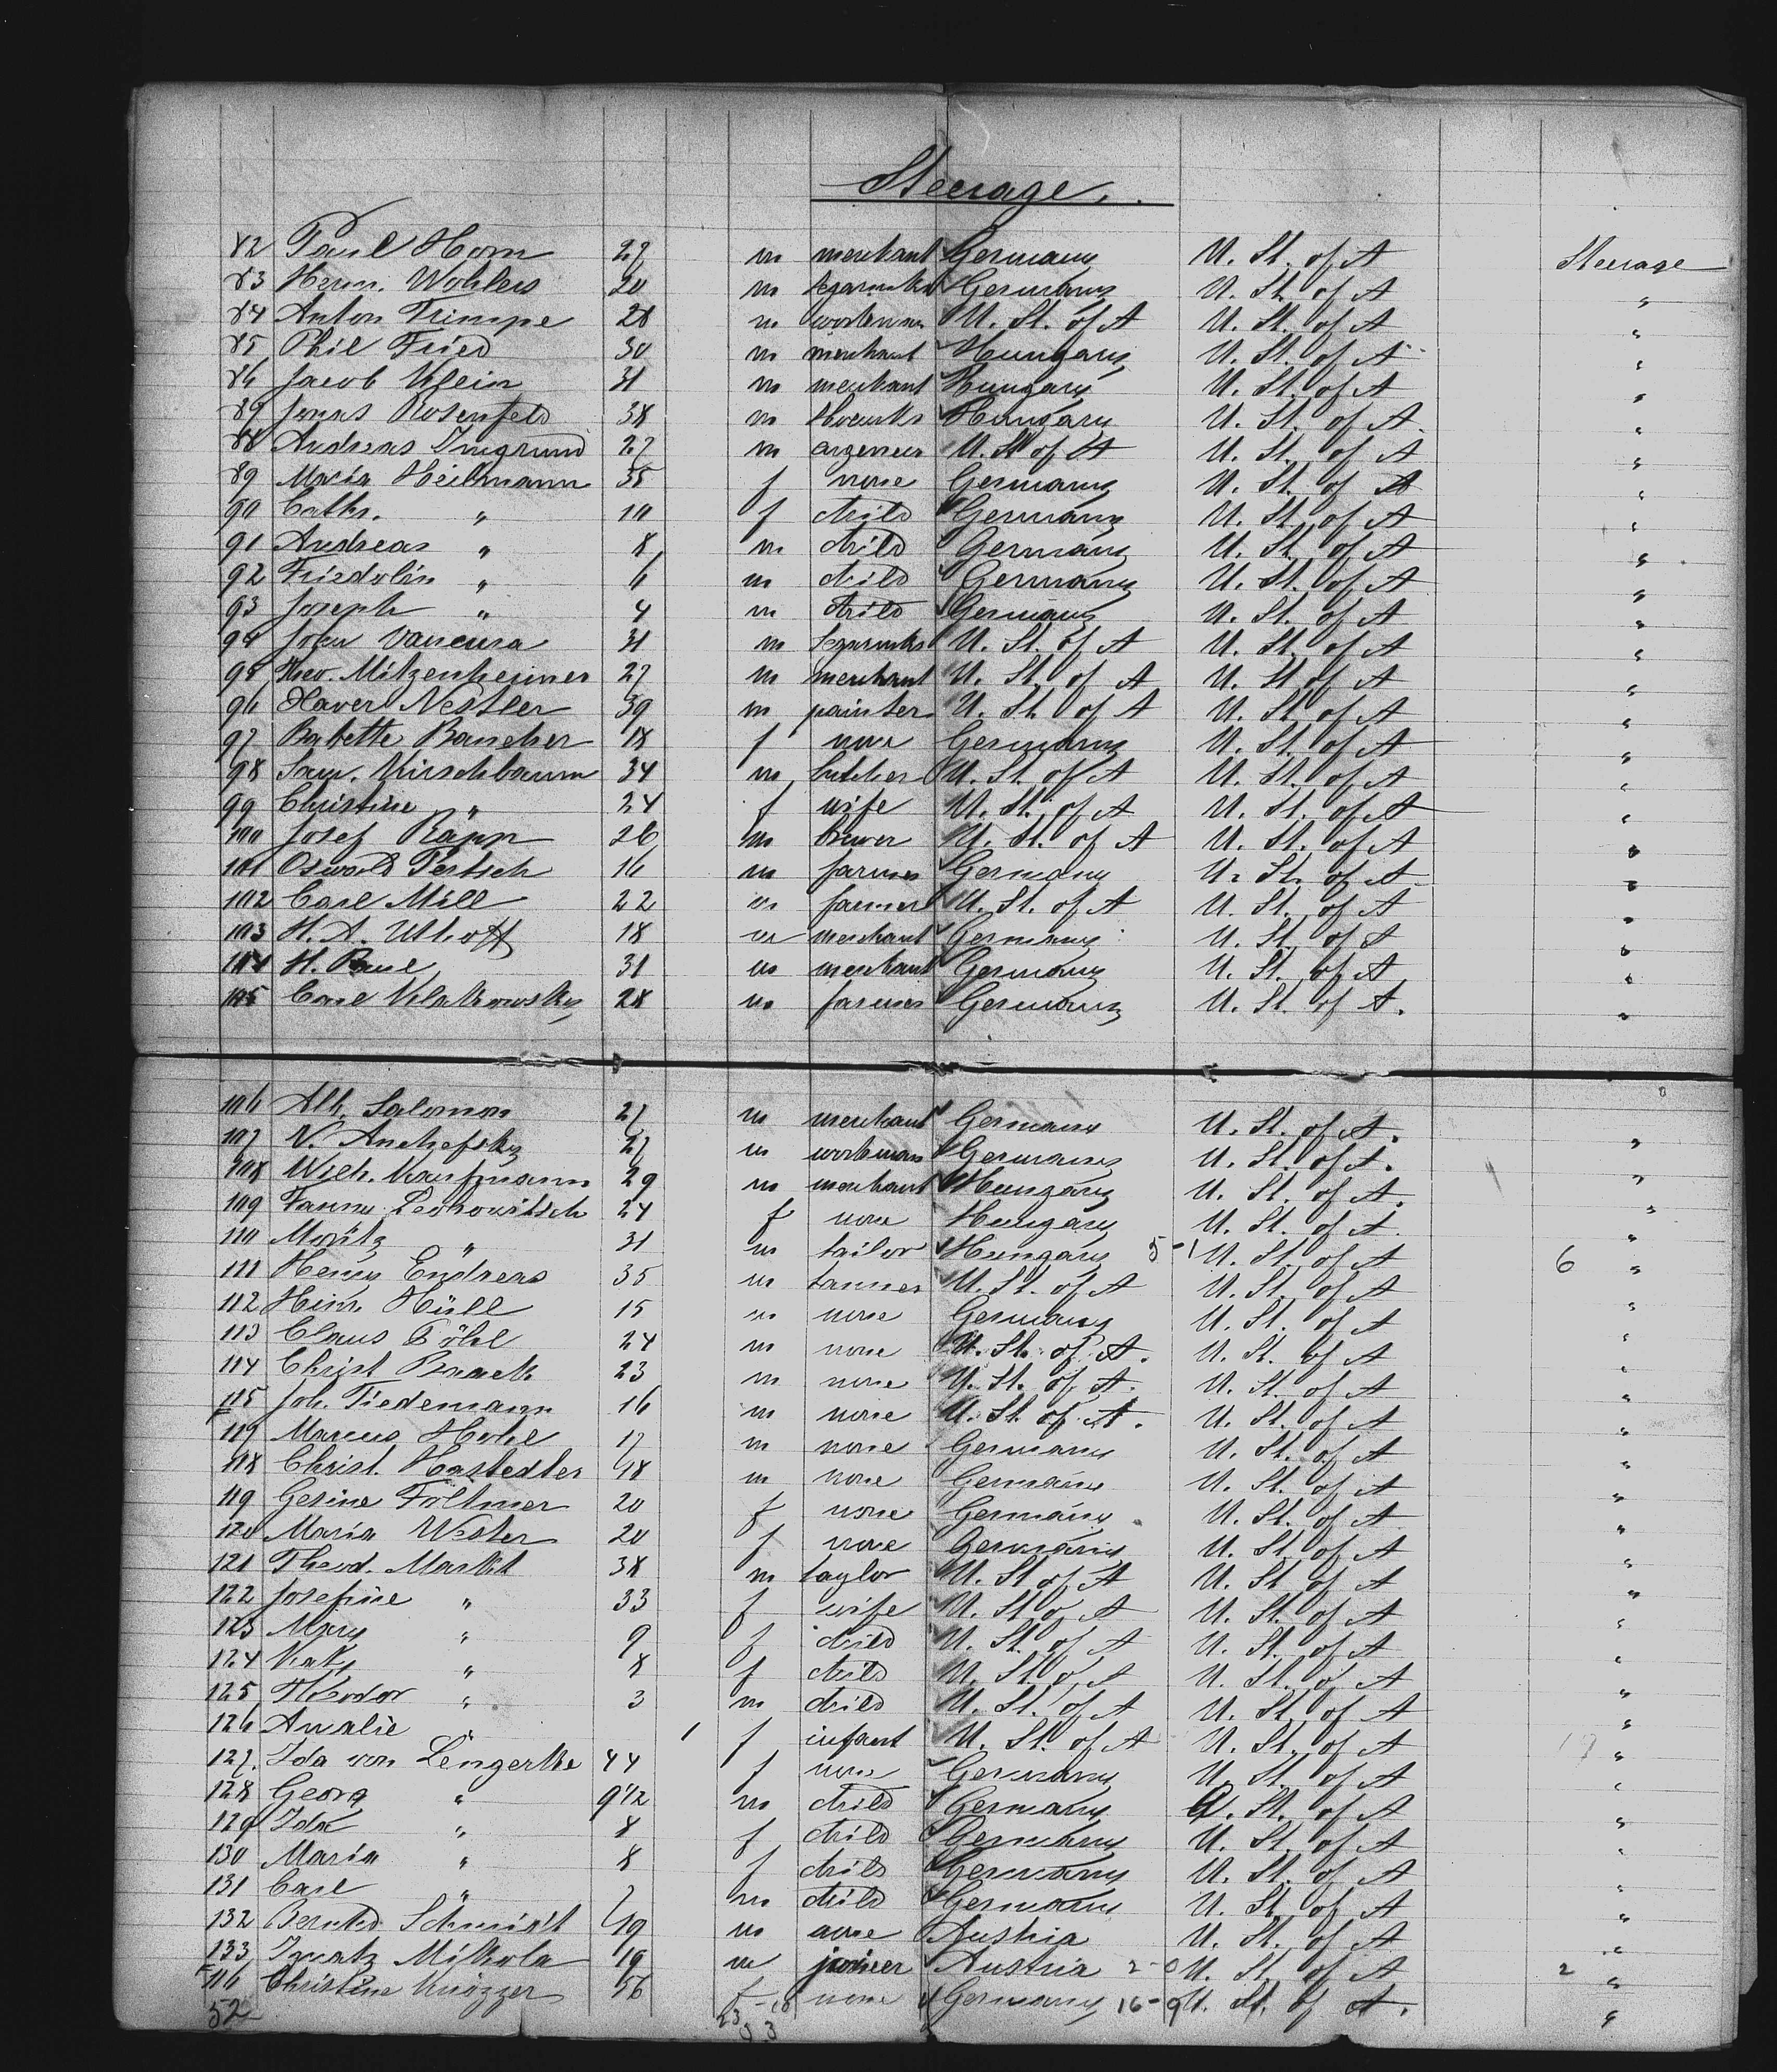 Steerage.
82 Paul Horn 27 m merchant Germany U. St. of A Steerage
83 Herm. Wohlers 20 m Segarmker Germany U. St. of A "
84 Anton Trimpe 28 m workman U. St. of A U. St. of A "
85 Phil Fried 30 m merchant Hungary U. St. of A "
86 Jacob Klein 31 m merchant Hungary U. St. of A "
87 Jonas Rosenfeld 38 m Hungary U. St. of A. "
88 Andreas Imgrund 27 m U. St of A U. St. of A "
89 Maria Heilmann 35 f none Germany U. St. of A "
90 Cath. " 10 f child Germany U. St. of A "
91 Andreas " 8 m child Germany U. St. of A "
92 Fridolin " 6 m child Germany U. St. of A "
93 Joseph " 4 m child Germany U. St. of A "
94 John Vancura 31 m Segarmker U. St. of A U. St. of A "
95 Theo. Mitzenheimer 27 m merchant U. St. of A U. St of A "
96 Xaver Nestler 39 m painter U. St. of A U. St. of A "
97 Babette Bancher 18 f none Germany U. St. of A "
98 Sam. Kirschbaum 34 m butcher U. St. of A U. St. of A "
99 Christine " 24 f wife U. St. of A U. St. of A "
100 Josef Rapp 26 m brewer U. St. of A U. St. of A "
101 Oswald Pertsch 16 m farmer Germany U. St. of A "
102 Carl Mill 22 m farmer U. St. of A U. St. of A "
103 H. A. Uthoff 18 m merchant Germany U. St. of A "
104 H. Paul 31 m merchant Germany U. St. of A "
105 Carl Klatkowsky 28 m farmer Germany U. St. of A. "
106 Alb. Salomon 27 m merchant Germany U. St. of A. "
107 V. Anchefsky 27 m workman Germany U. St. of A. "
108 Wilh. Kaufmann 29 m merchant Hungary U. St. of A. "
109 Fanny Lerkowitsch 24 f none Hungary U. St. of A. "
110 Moritz " 31 m tailor Hungary 5-1 U. St. of A 6 "
111 Henry Endreas 35 m tanner U. St. of A U. St. of A "
112 Heinr. Hüll 15 m none Germany U. St. of A "
113 Claus Pöhl 24 m none U. St. of A. U. St. of A "
114 Christ Braack 23 m none U. St. of A. U. St. of A "
115 Joh. Tiedemann 16 m none U. St. of A. U. St. of A "
117 Marcus Hohl 17 m none Germany U. St. of A "
118 Christ. Hastedter 18 m none Germany U. St. of A "
119 Gesine Foltmer 20 f none Germany U. St. of A "
120 Maria Wester 20 f none Germany U. St. of A "
121 Theod. Markt 38 m taylor U. St of A U. St. of A "
122 Josefine " 33 f wife U. St of A U. St. of A "
123 Mary " 9 f child U. St. of A U. St. of A "
124 Katy " 8 f child U. St. of A U. St. of A "
125 Theodor " 3 m child U. St. of A U. St. of A "
126 Amalie " 1 f infant U. St. of A U. St. of A "
127. Ida von Lengerke 44 f none Germany U. St. of A "
128 Georg " 9 1/2 m child Germany U. St. of A "
129 Ida " 8 f child Germany U. St. of A "
130 Maria " 8 f child Germany U. St. of A "
131 Carl " 7 m child Germany U. St. of A "
132 Bernhd Schmidt 19 m none Austria U. St. of A "
133 Ignatz Mikola 19 m joiner Austria 2-0 U. St. of A 2 "
116 Christine Knözzer 56 f none Germany 16-9 U. St. of A. "
52 23 - 18